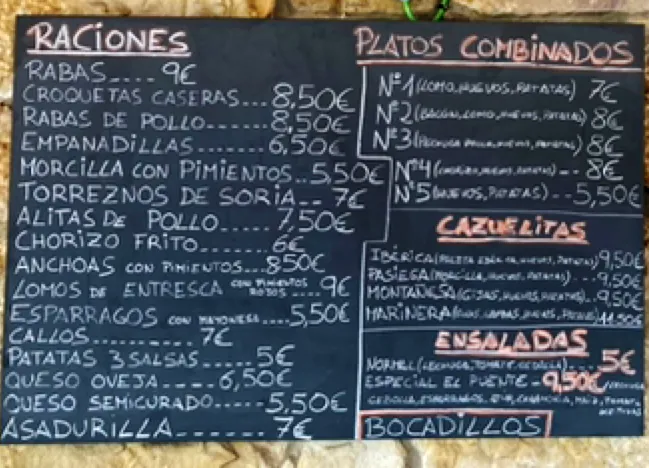 RACIONES
RABAS.... 9€
CROQUETAS CASERAS... 8,50€
RABAS DE POLLO...... 8,50€
EMPANADILLAS...... 6,50€
MORCILLA CON PIMIENTOS.. 5,50€
TORREZNOS DE SORIA.. 7€
ALITAS DE POLLO..... 7,50€
CHORIZO FRITO....... 6€
ANCHOAS CON PIMIENTOS... 850€
LOMOS DE ENTRESCA CON PIMIENTOS ROJOS .... 9€
ESPARRAGOS CON MAYONESA .... 5,50€
CALLOS.......... 7€
PATATAS 3 SALSAS ..... 5€
QUESO OVEJA ----- 6,50€
QUESO SEMICURADO..... 5,50€
ASADURILLA------- 7€
PLATOS COMBINADOS
Nº1 (LOMO, HUEVOS, PATATAS) 7€
Nº2 (BACON, LOMO, HUEVOS, PATATAS) 8€
Nº3 (PECHUGA POLLO, HUEVOS, PATATAS) 8€
Nº4 (CHORIZO, HUEVOS, PATATAS) -- 8€
Nº5 (HUEVOS, PATATAS) -- 5,50€
CAZUELITAS
IBÉRICA ( HUEVOS, PATATAS) 9,50€
PASIEGA (MORCILLA, HUEVOS, PATATAS) ... 9,50€
MONTAÑESA ( HUEVOS, PATATAS) .. 9,50€
MARINERA (GULAS, GAMBAS, HUEVOS, PATATAS) 11,50€
ENSALADAS
NORMAL (LECHUGA, TOMATE, CEBOLLA)... 5€
ESPECIAL EL PUENTE - 9,50€/LECHUGA
CEBOLLA, ESPARRAGOS, MAIZ, TOMATE,
BOCADILLOS